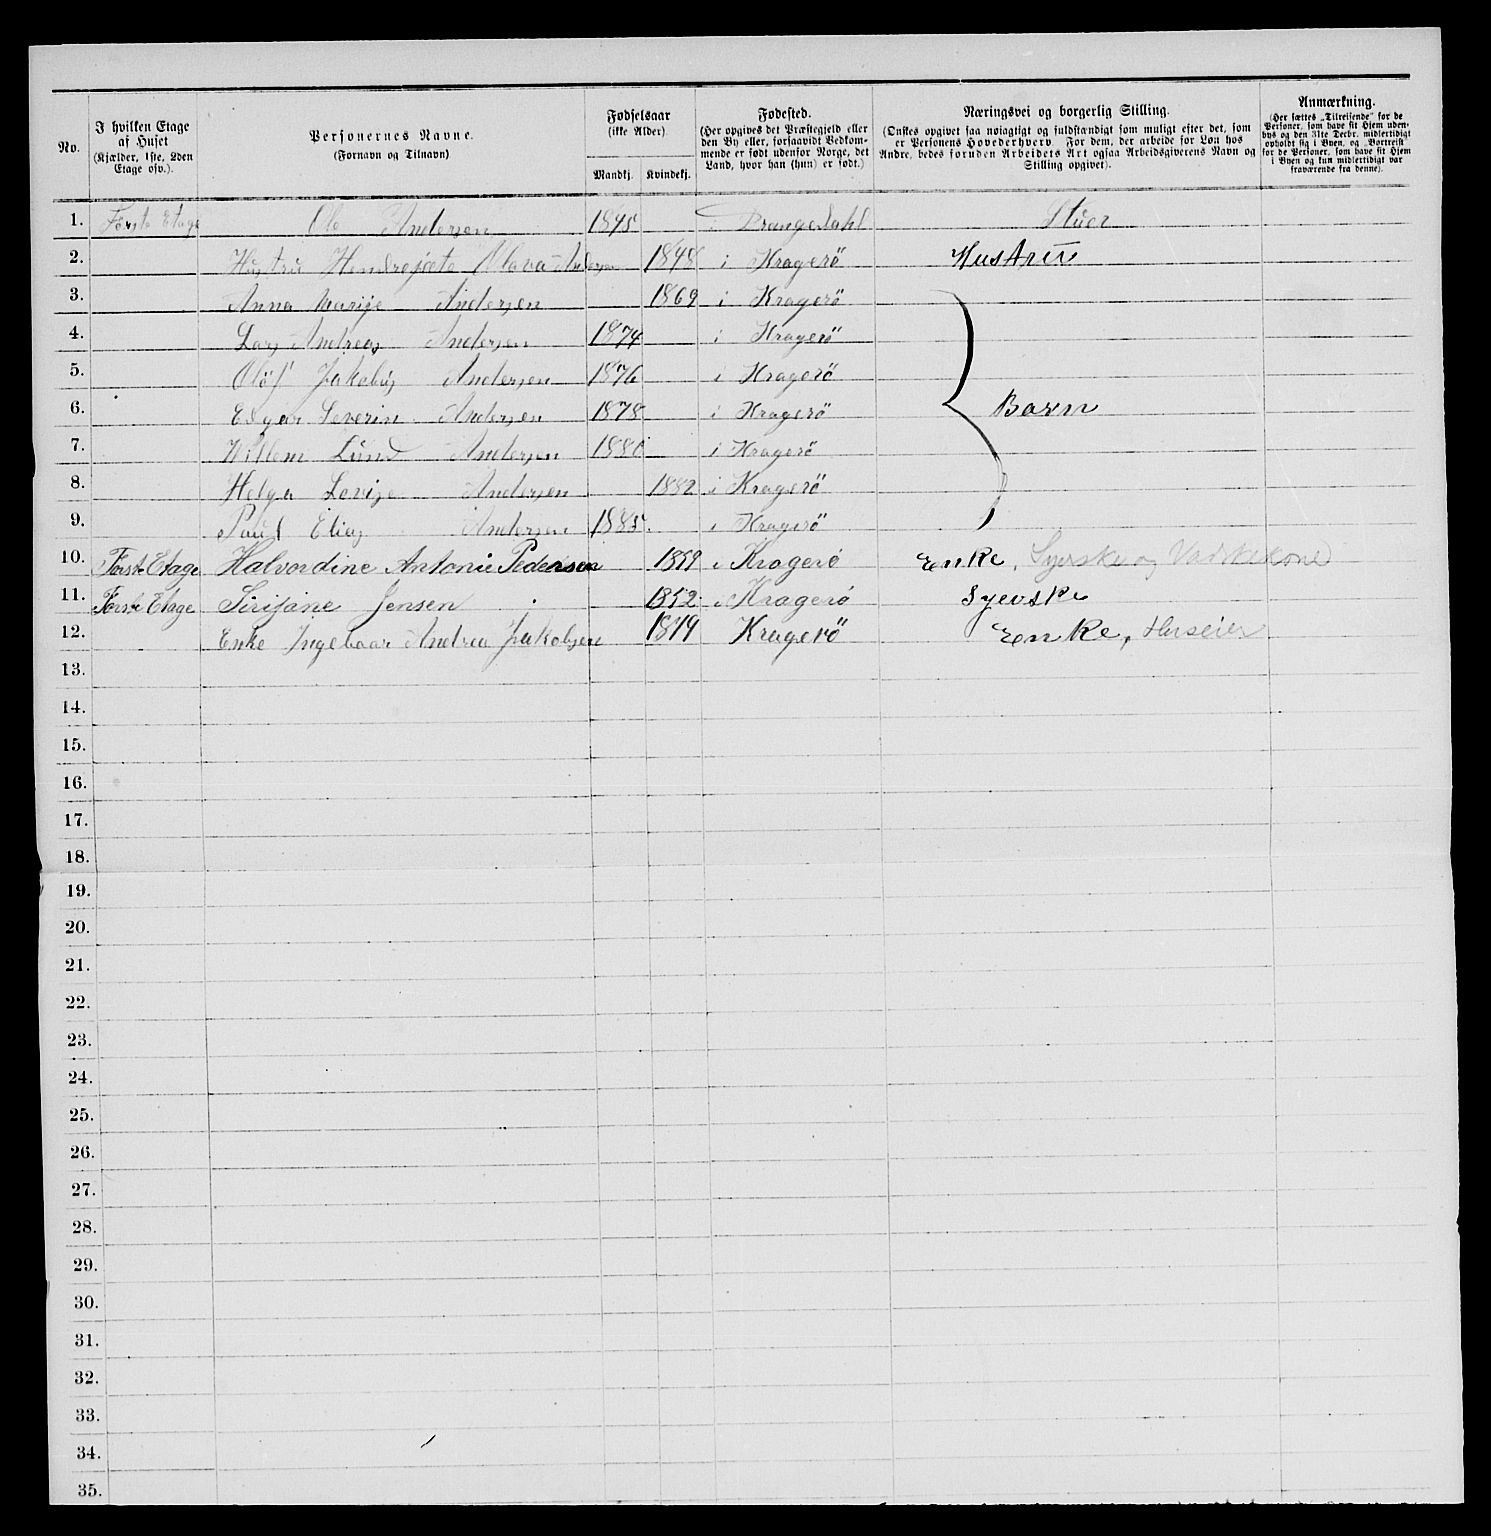 No.
I hvilken Etage
af Huset
(Kjælder, 1ste, 2den
Etage osv.).
Personernes Navne.
(Fornavn og Tilnavn)
Fødselsaar
(ikke Alder).
Mandkj. Kvindekj.
Fødested.
(Her opgives det Præstegjeld eller
den By eller, forsaavidt Bedkom-
mende er født udenfor Norge, det
Land, hvor han (hun) er født.)
Næringsvei og borgerlig Stilling.
(Ønskes opgivet saa nøiagtigt og fuldstændigt som muligt efter det, som
er Personens Hovederhverv. For dem, der arbeide for Løn hos
Andre, bedes foruden Arbeidets Art ogsaa Arbeidsgiverens Navn og
Stilling opgivet).
Anmærkning.
(Her sættes „Tilreisende" for de
Personer, som have sit Hjem uden-
bys og den 31te Decbr. midlertidigt
opholdt sig i Byen, og „Bortreist"
for de Personer, som have sit Hjem
i Byen og kun midlertidigt var
fraværende fra denne).
1. Første Etage Ole Andersen 1845 i Drangedahl Stuer
2. Hustru Olava Andersen 1848 i Kragerö Hustru
3. Anna Marije Andersen 1869 i Kragerö
4. Lars Andreas Andersen 1874 i Kragerö
5. Olöf Jakobus Andersen 1876 i Kragerö
6. Edgar Severin Andersen 1878 i Kragerö Barn
7. Willem Lund Andersen i Kragerö
8. Helga Lovise Andersen 1882 i Kragerö
9. Paul Elias Andersen 1885 i Kragerö
10. Første Etage Halvordine Antonie Pedersen i Kragerø Enke, Syerske og Vaskekone
11. Første Etage Sirijane Jensen 1852 i Kragerø Syerske
12. Enke Ingeboar Andrea Jakobsen 1819 Kragerö Enke, Huseier
13.
14.
15.
16.
17.
18.
19.
20.
21.
22.
23.
24.
25.
26.
27.
28.
29.
30.
31.
32.
33.
34.
35.